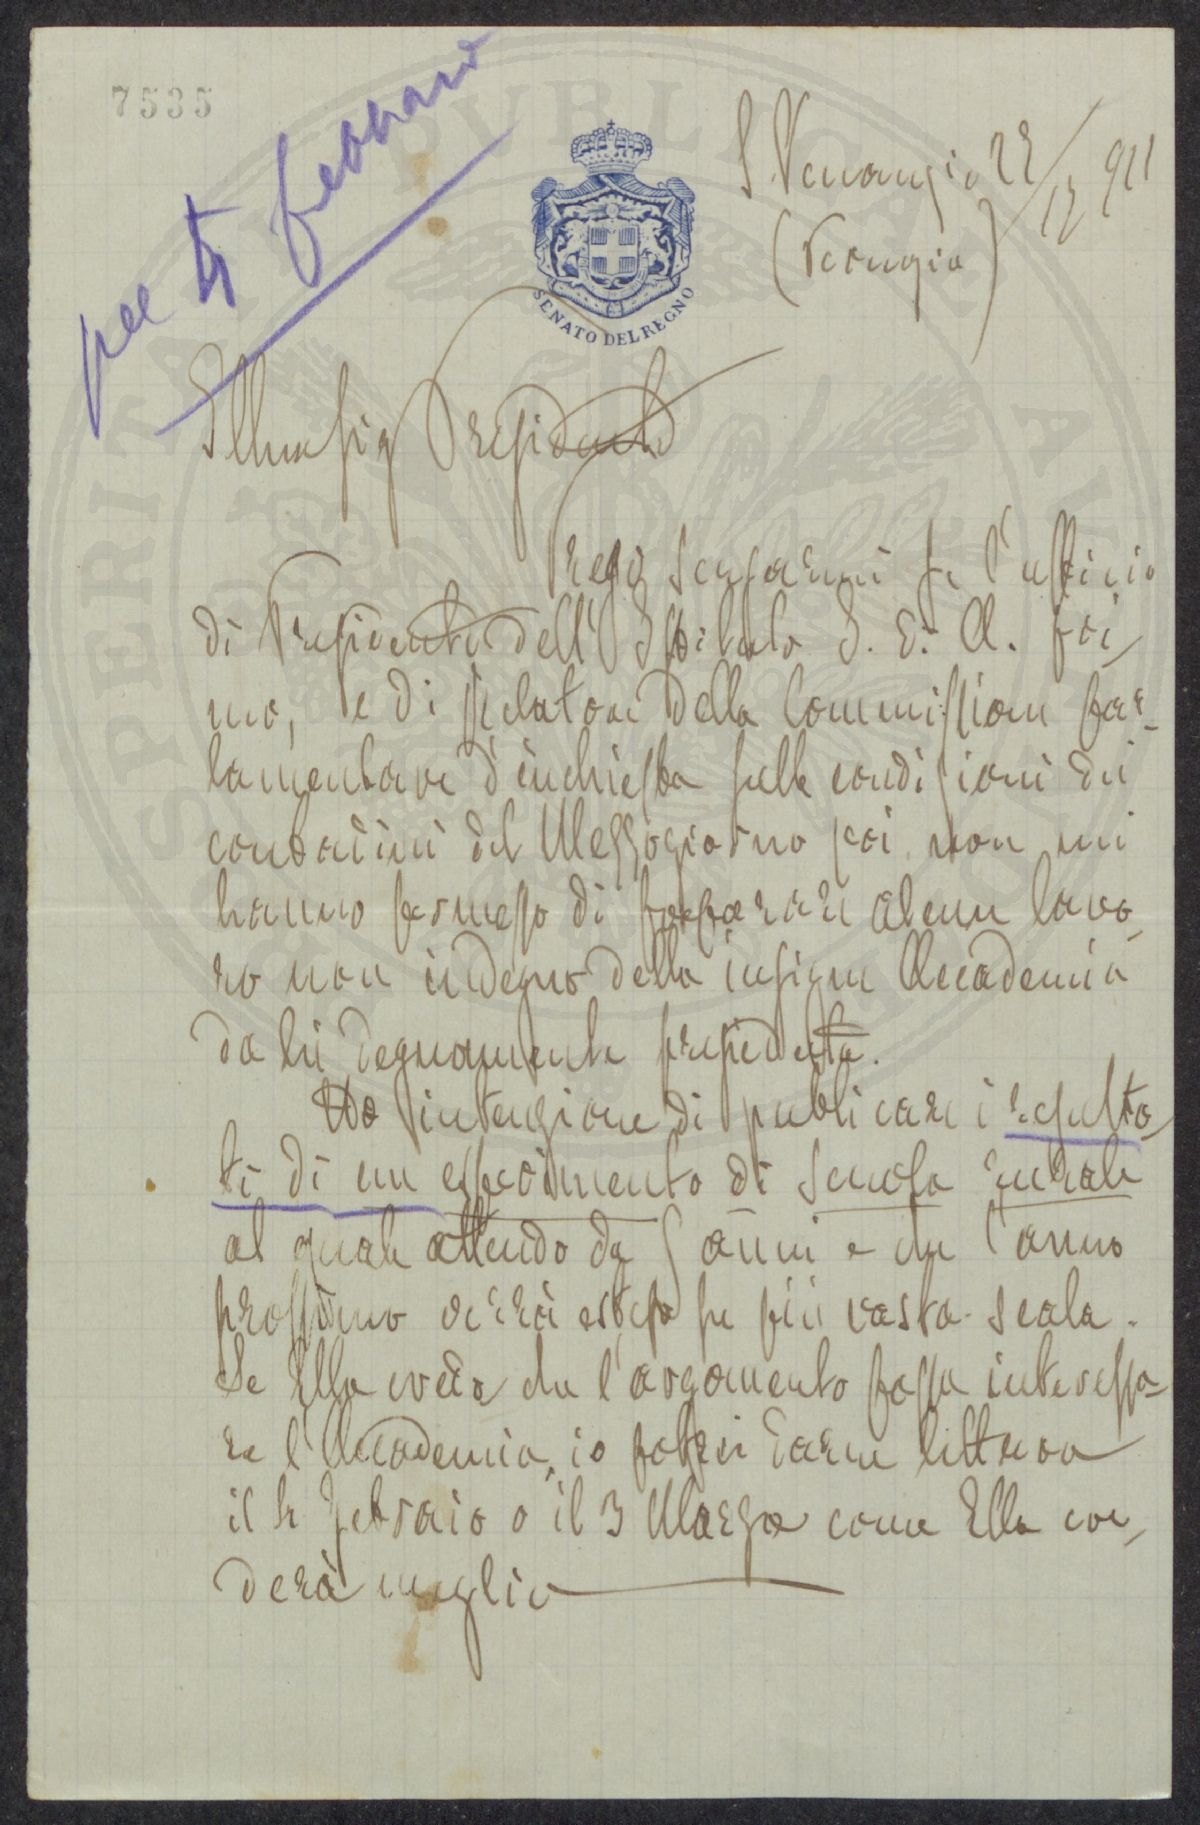 7535
per 4 febbraio
S Venanzio 22/12 911
(Perugia)
SENATO DEL REGNO
Illmo sig Presidente
Prego scusarmi se l'ufficio
di Presidente dell' Istituto I. d. A. pri
mo, e di Relatore della Commissione par-
lamentare d'inchiesta sulle condizioni dei
contadini del Mezzogiorno poi non mi
hanno permesso di preparare alcun lavo
ro non indegno della insigne Accademia
da lei degnamente presieduta.
Ho intenzione di publicare i resulta
ti di un esperimento di scuola rurale
al quale attendo da 5 anni e che l'anno
prossimo verrà esteso su più vasta scala.
Se Ella crede che l'argomento possa interessa-
re l'Accademia, io potrei darne lettura
il 4 Febraio o il 3 Marzo come Ella cre
derà meglio